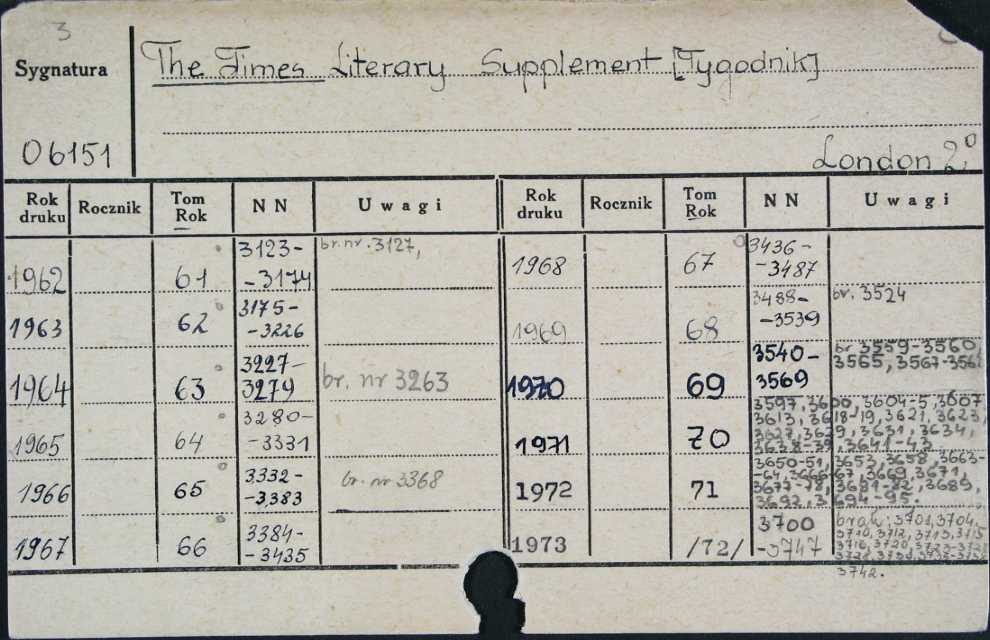 3
Sygnatura
The Times Literary Supplement [Tygodnik]
06151
London 2º
Rok druku Rocznik Tom Rok NN Uwagi Rok druku Rocznik Tom Rok NN Uwagi
1962 61 3123-
-3174 br. nr. 3127,
1963 62 3175-
-3226
1964 63 3227-
3279 br. nr 3263
1965 64 3280-
-3331
1966 65 3332-
-3383 br. nr 3368
1967 66 3384-
-3435
1968 67 3436-
-3487
1969 68 3488-
-3539 br. 3524
1970 69 3540-
3569 br 3559-3560,
3565, 3567-
1971 70 3597, 3600, 3604-5, 3607
3613, 3618-19, 3621, 3623,
3627, 3629, 3631, 3634,
3638-39, 3641-43
1972 71 3650-51, 3653, 3658, 3663-
-64, 3669, 3671,
3677-78, 3681-82, 3689,
3692, 3694-95.
1973 /72/ 3700
-3747 brak: 3701, 3704,
3710, 3712, 3713, 3715
3716, 3720,
3742.